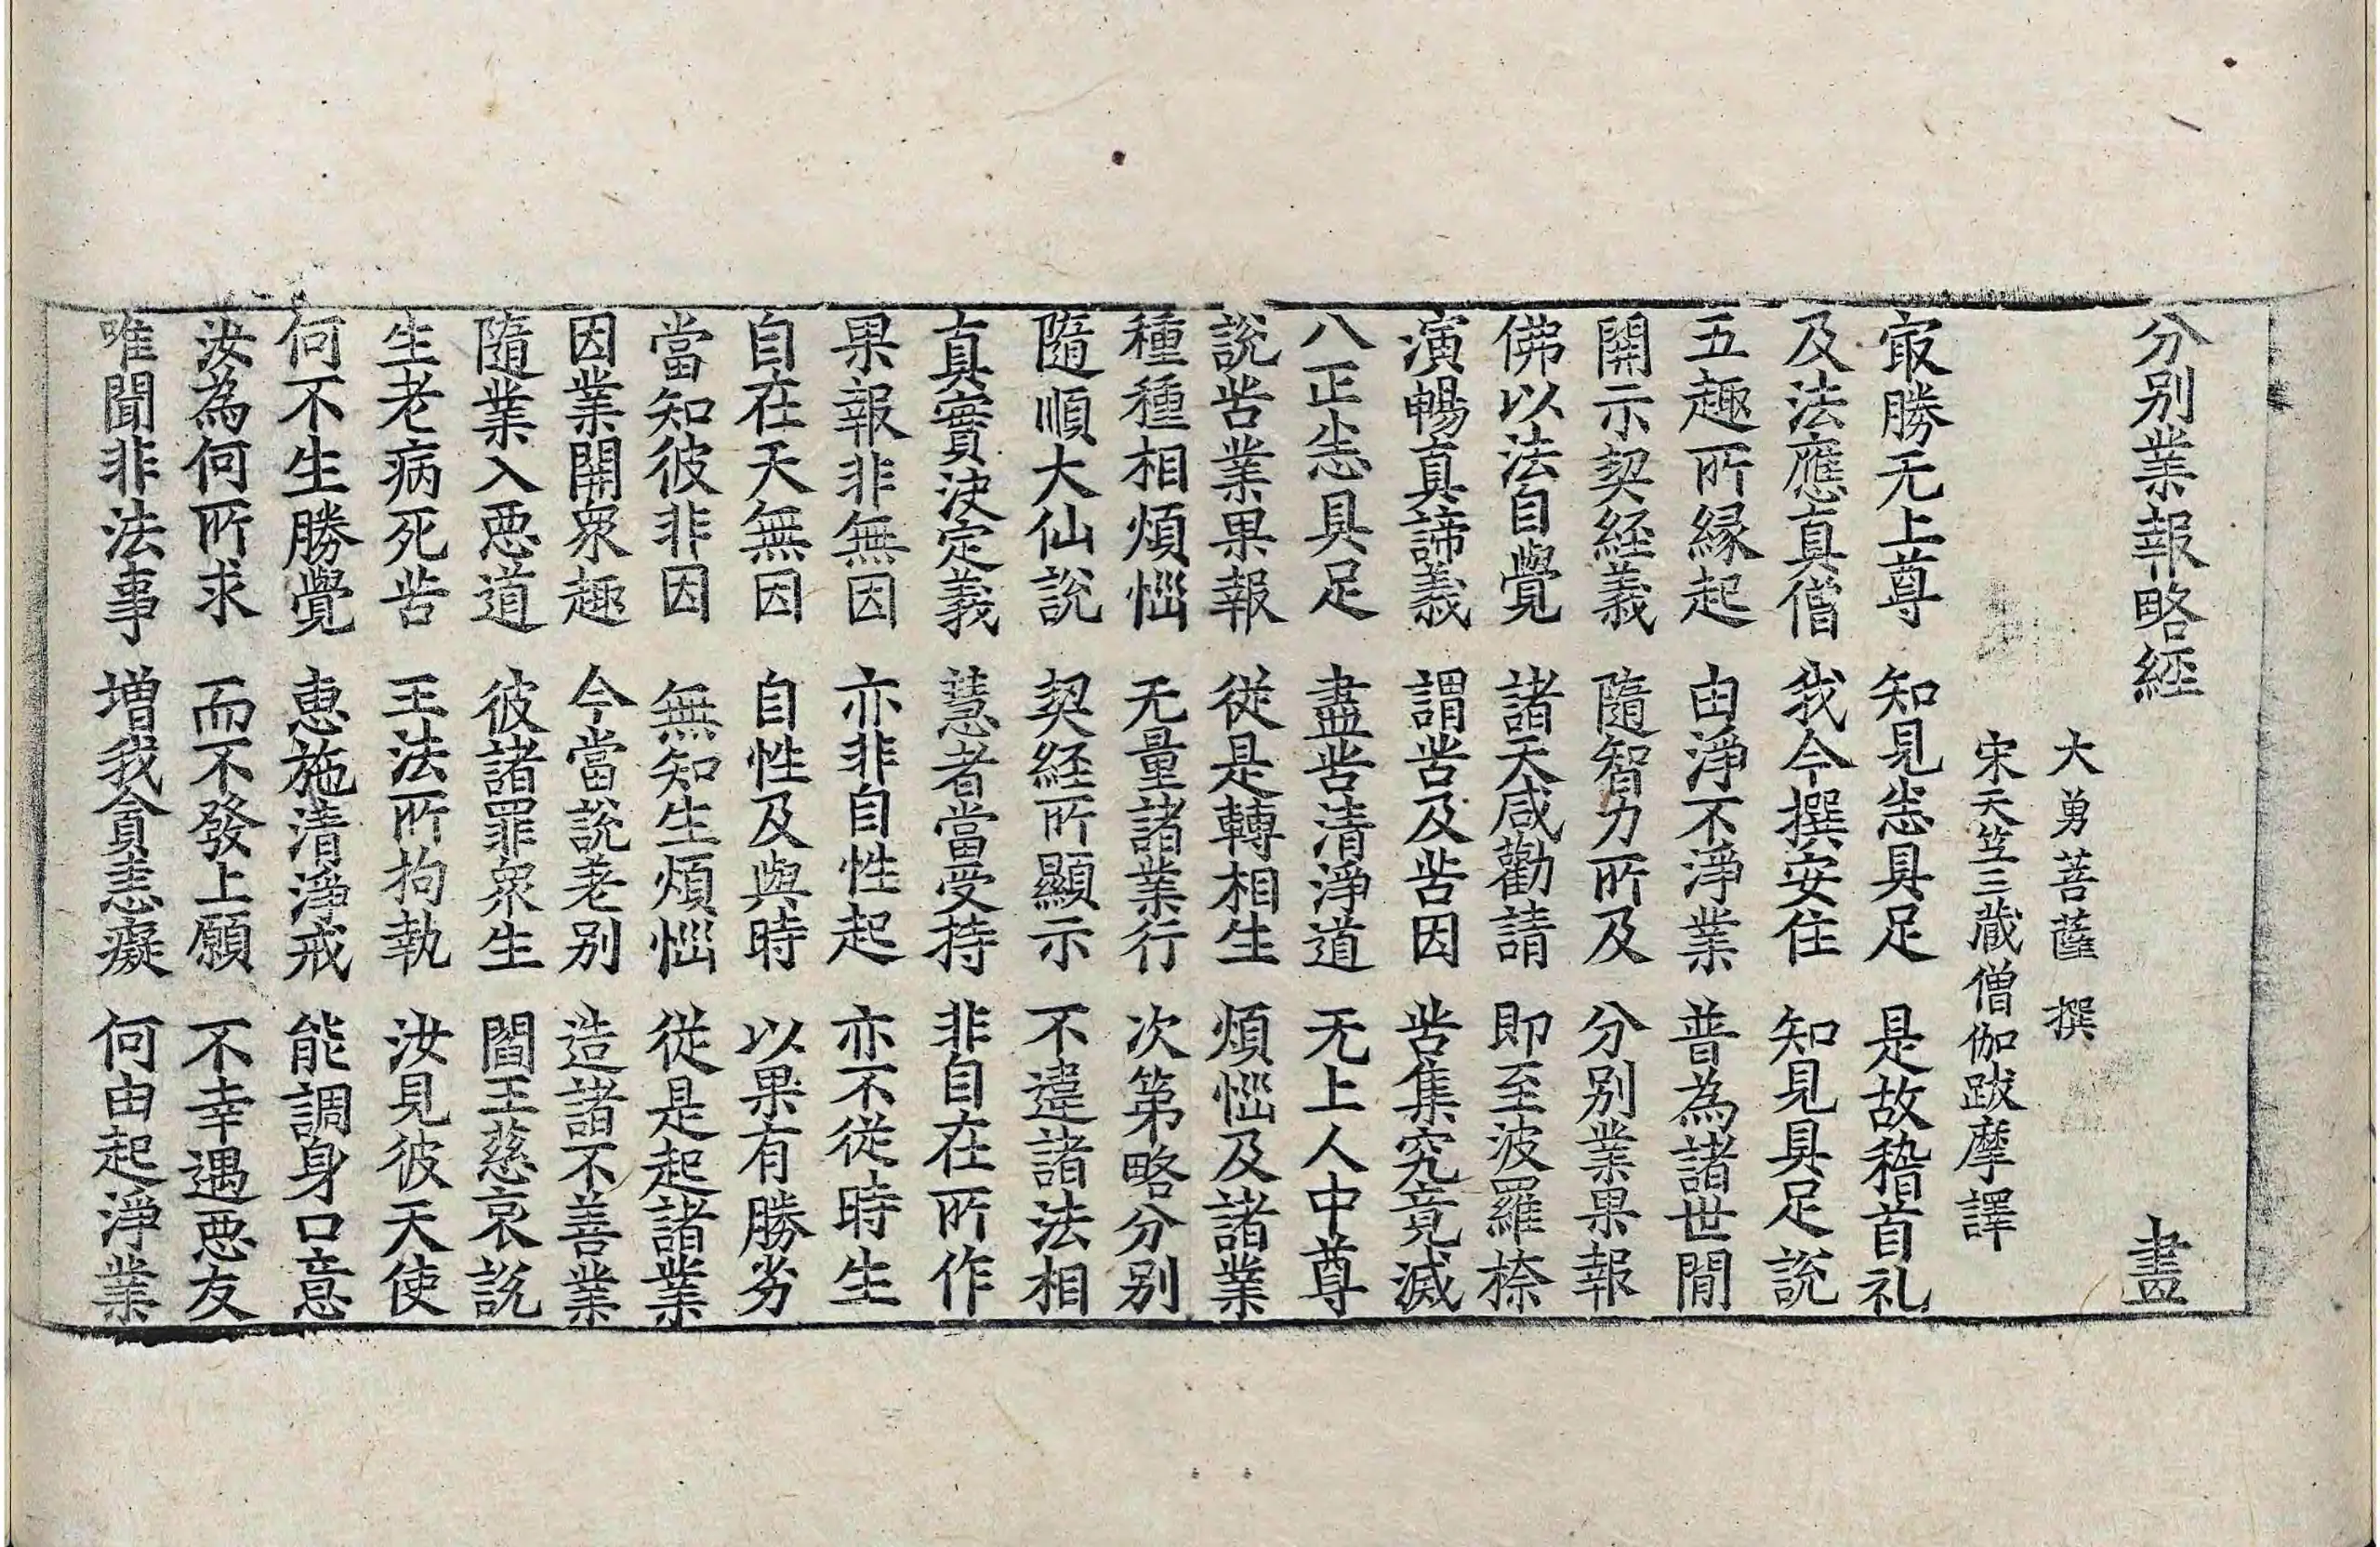 分別業報略経 盡
大勇菩薩 撰
宋天竺三蔵僧伽跋摩譯
冣勝无上尊 知見㤀具足 是故稽首礼
及法應真僧 我今撰安住 知見具足說
五趣所縁起 由淨不淨業 普為諸世間
開示契経義 隨智力所及 分別業果報
佛以法自覺 諸天咸勸請 即至波羅柰
演暢真諦義 謂苦及苦因 苦集究竟滅
八正㤀具足 盡苦清淨道 无上人中尊
說苦業果報 從是轉相生 煩惱及諸業
種種相煩惱 无量諸業行 次第略分別
隨順大仙說 契経所顯示 不違諸法相
真實決定義 慧者當受持 非自在所作
果報非無因 亦非自性起 亦不從時生
自在天無因 自性及與時 以果有勝劣
當知彼非因 無知生煩惱 從是起諸業
因業開衆趣 今當說差別 造諸不善業
隨業入惡道 彼諸罪衆生 閻王慈哀說
生老病死苦 王法所拘執 汝見彼天使
何不生勝覺 惠施清淨戒 能調身口意
汝為何所求 而不發上願 不幸遇惡友
唯聞非法事 增我貪恚癡 何由起淨業